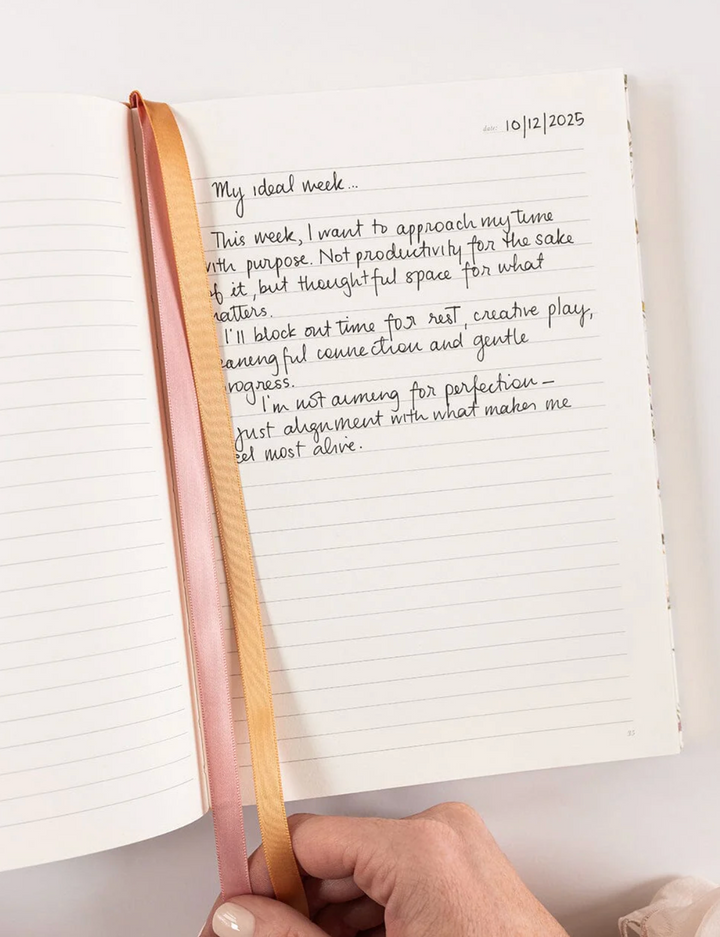 date: 10/12/2025
My ideal week...
This week, I want to approach my time
with purpose. Not productivity for the sake
of it, but thoughtful space for what
matters.
I'll block out time for rest, creative play,
eaningful connection and gentle
rogress.
I'm not aiming for perfection –
just alignment with what makes me
eel most alive.